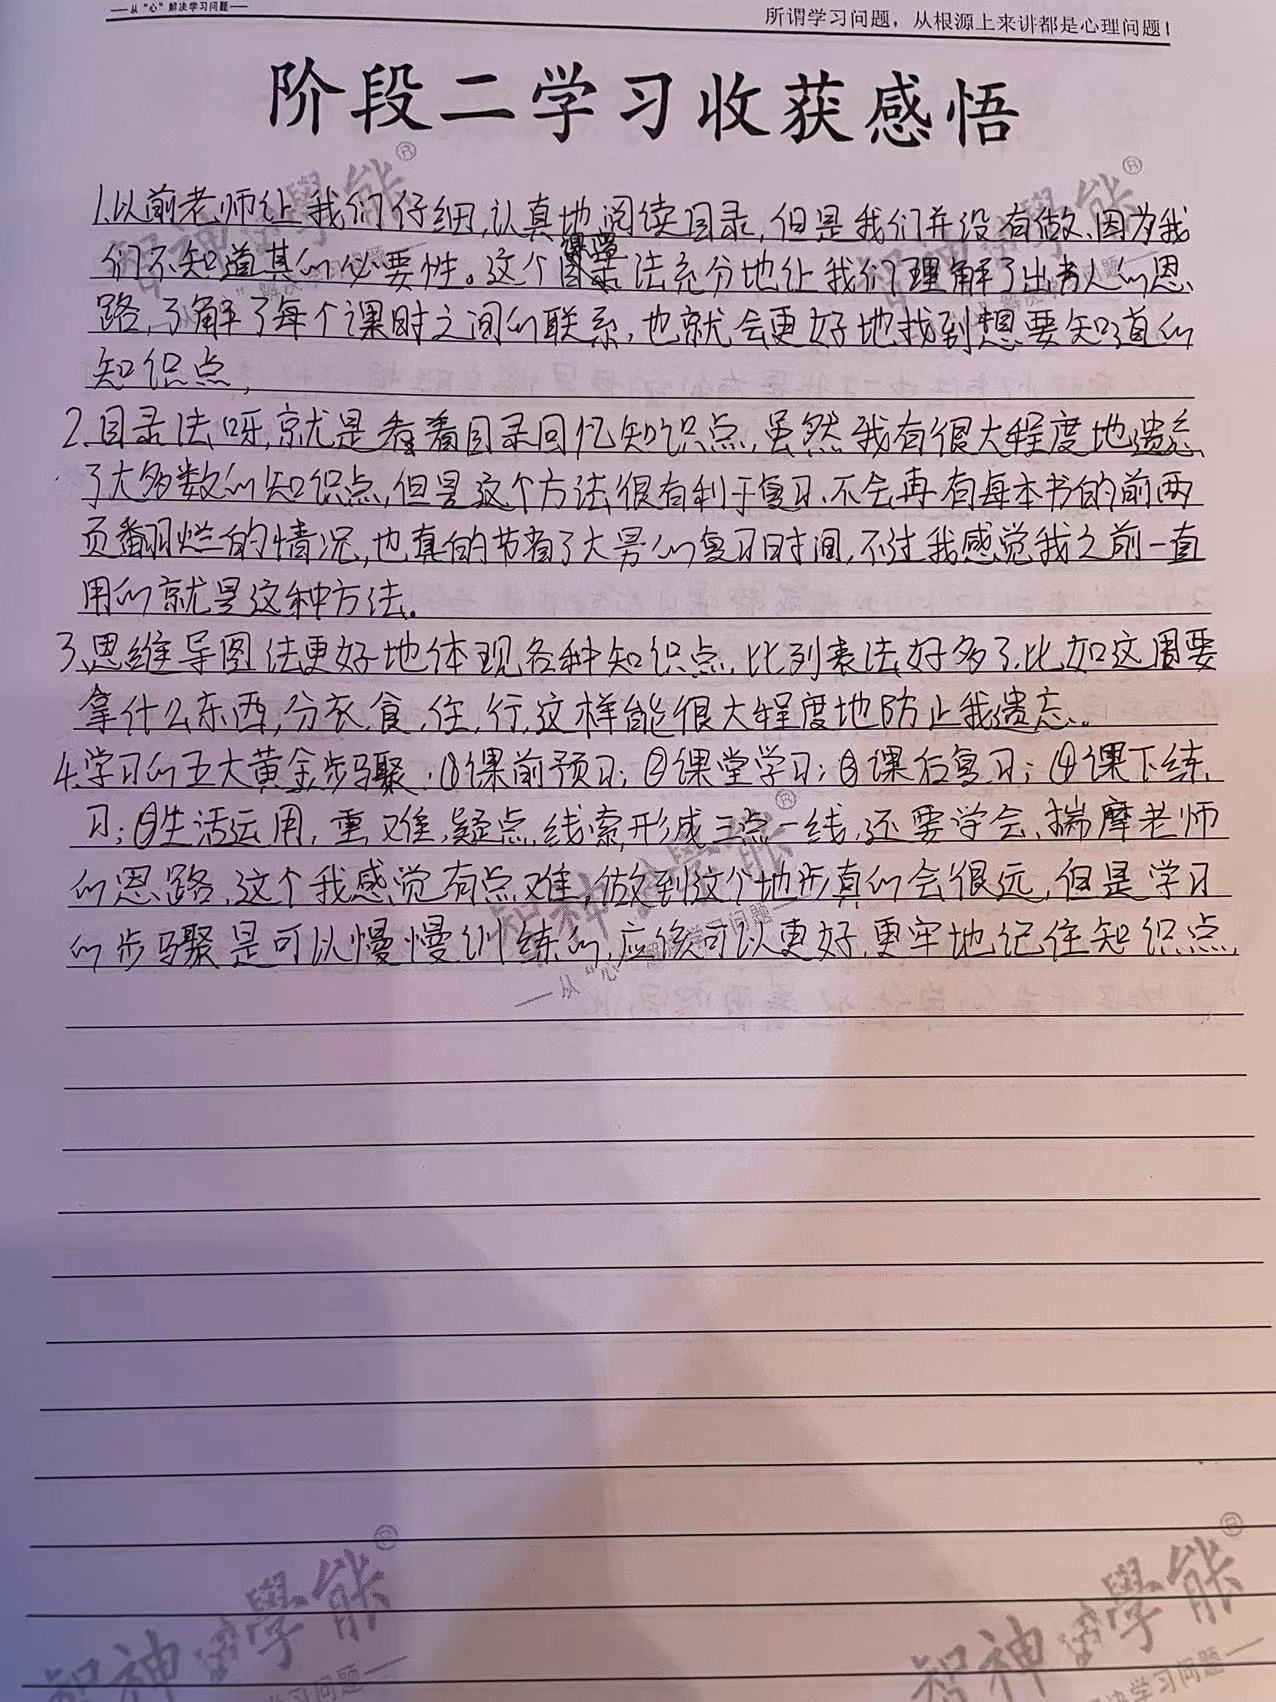 ——从“心”解决学习问题——
所谓学习问题，从根源上来讲都是心理问题！
阶段二学习收获感悟
1.以前老师让我们仔细,认真地阅读目录,但是我们并没有做、因为我
们不知道其的必要性。这个法充分地让我们理解了出书人的思
路,了解了每个课时之间的联系,也就会更好地找到想要知道的
知识点,
2.目录法呀,就是看着目录回忆知识点,虽然我有很大程度地遗忘
了大多数的知识点,但是这个方法很有利于复习.不会再有每本书的前两
页翻烂的情况,也真的节省了大量的复习时间,不过我感觉我之前一直
用的就是这种方法.
3.思维导图法更好地体现各种知识点,比列表法好多了.比如这周要
拿什么东西,分衣,食,住,行,这样能很大程度地防止我遗忘..
4.学习的五大黄金步骤:①课前预习;②课堂学习;③课后复习;④课下练
习;⑤生活运用,重,难,疑点,线索形成三点一线,还要学会揣摩老师
的思路,这个我感觉有点难,做到这个地步真的会很远,但是学习
的步骤是可以慢慢训练的,应该可以更好,更牢地记住知识点,
智神 學能®
智神 學能®
智神 學能®
——从“心”解决学习问题——
智神 學能®
智神 學能®